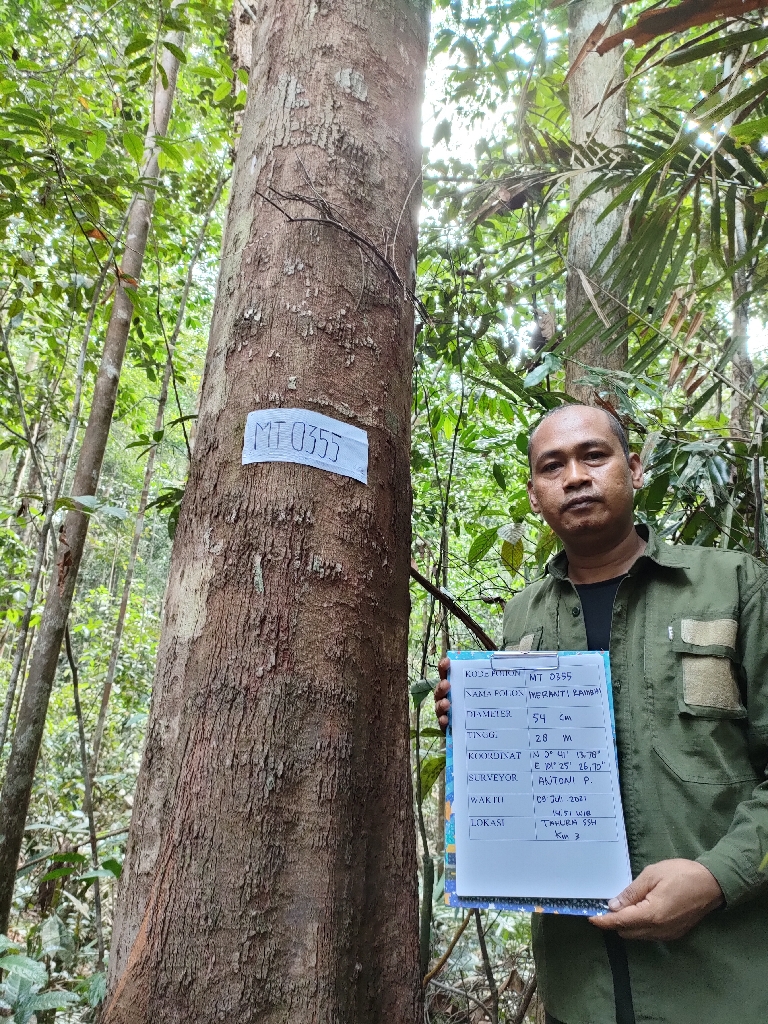 MT 0355
KODE POHON MT 0355
NAMA POHON MERANTI RAMBAI
DIAMETER 54 cm
TINGGI 28 M
KOORDINAT N 0° 41' 13,78"
E 101° 25' 26,70"
SURVEYOR ANTONI P.
WAKTU 09 JULI 2021
14.51 WIB
LOKASI TAHURA SSH
KM 3